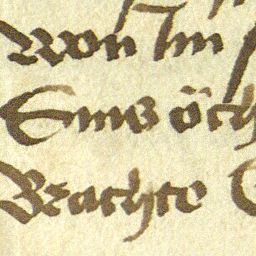 won Im
Eins öch
Brachte